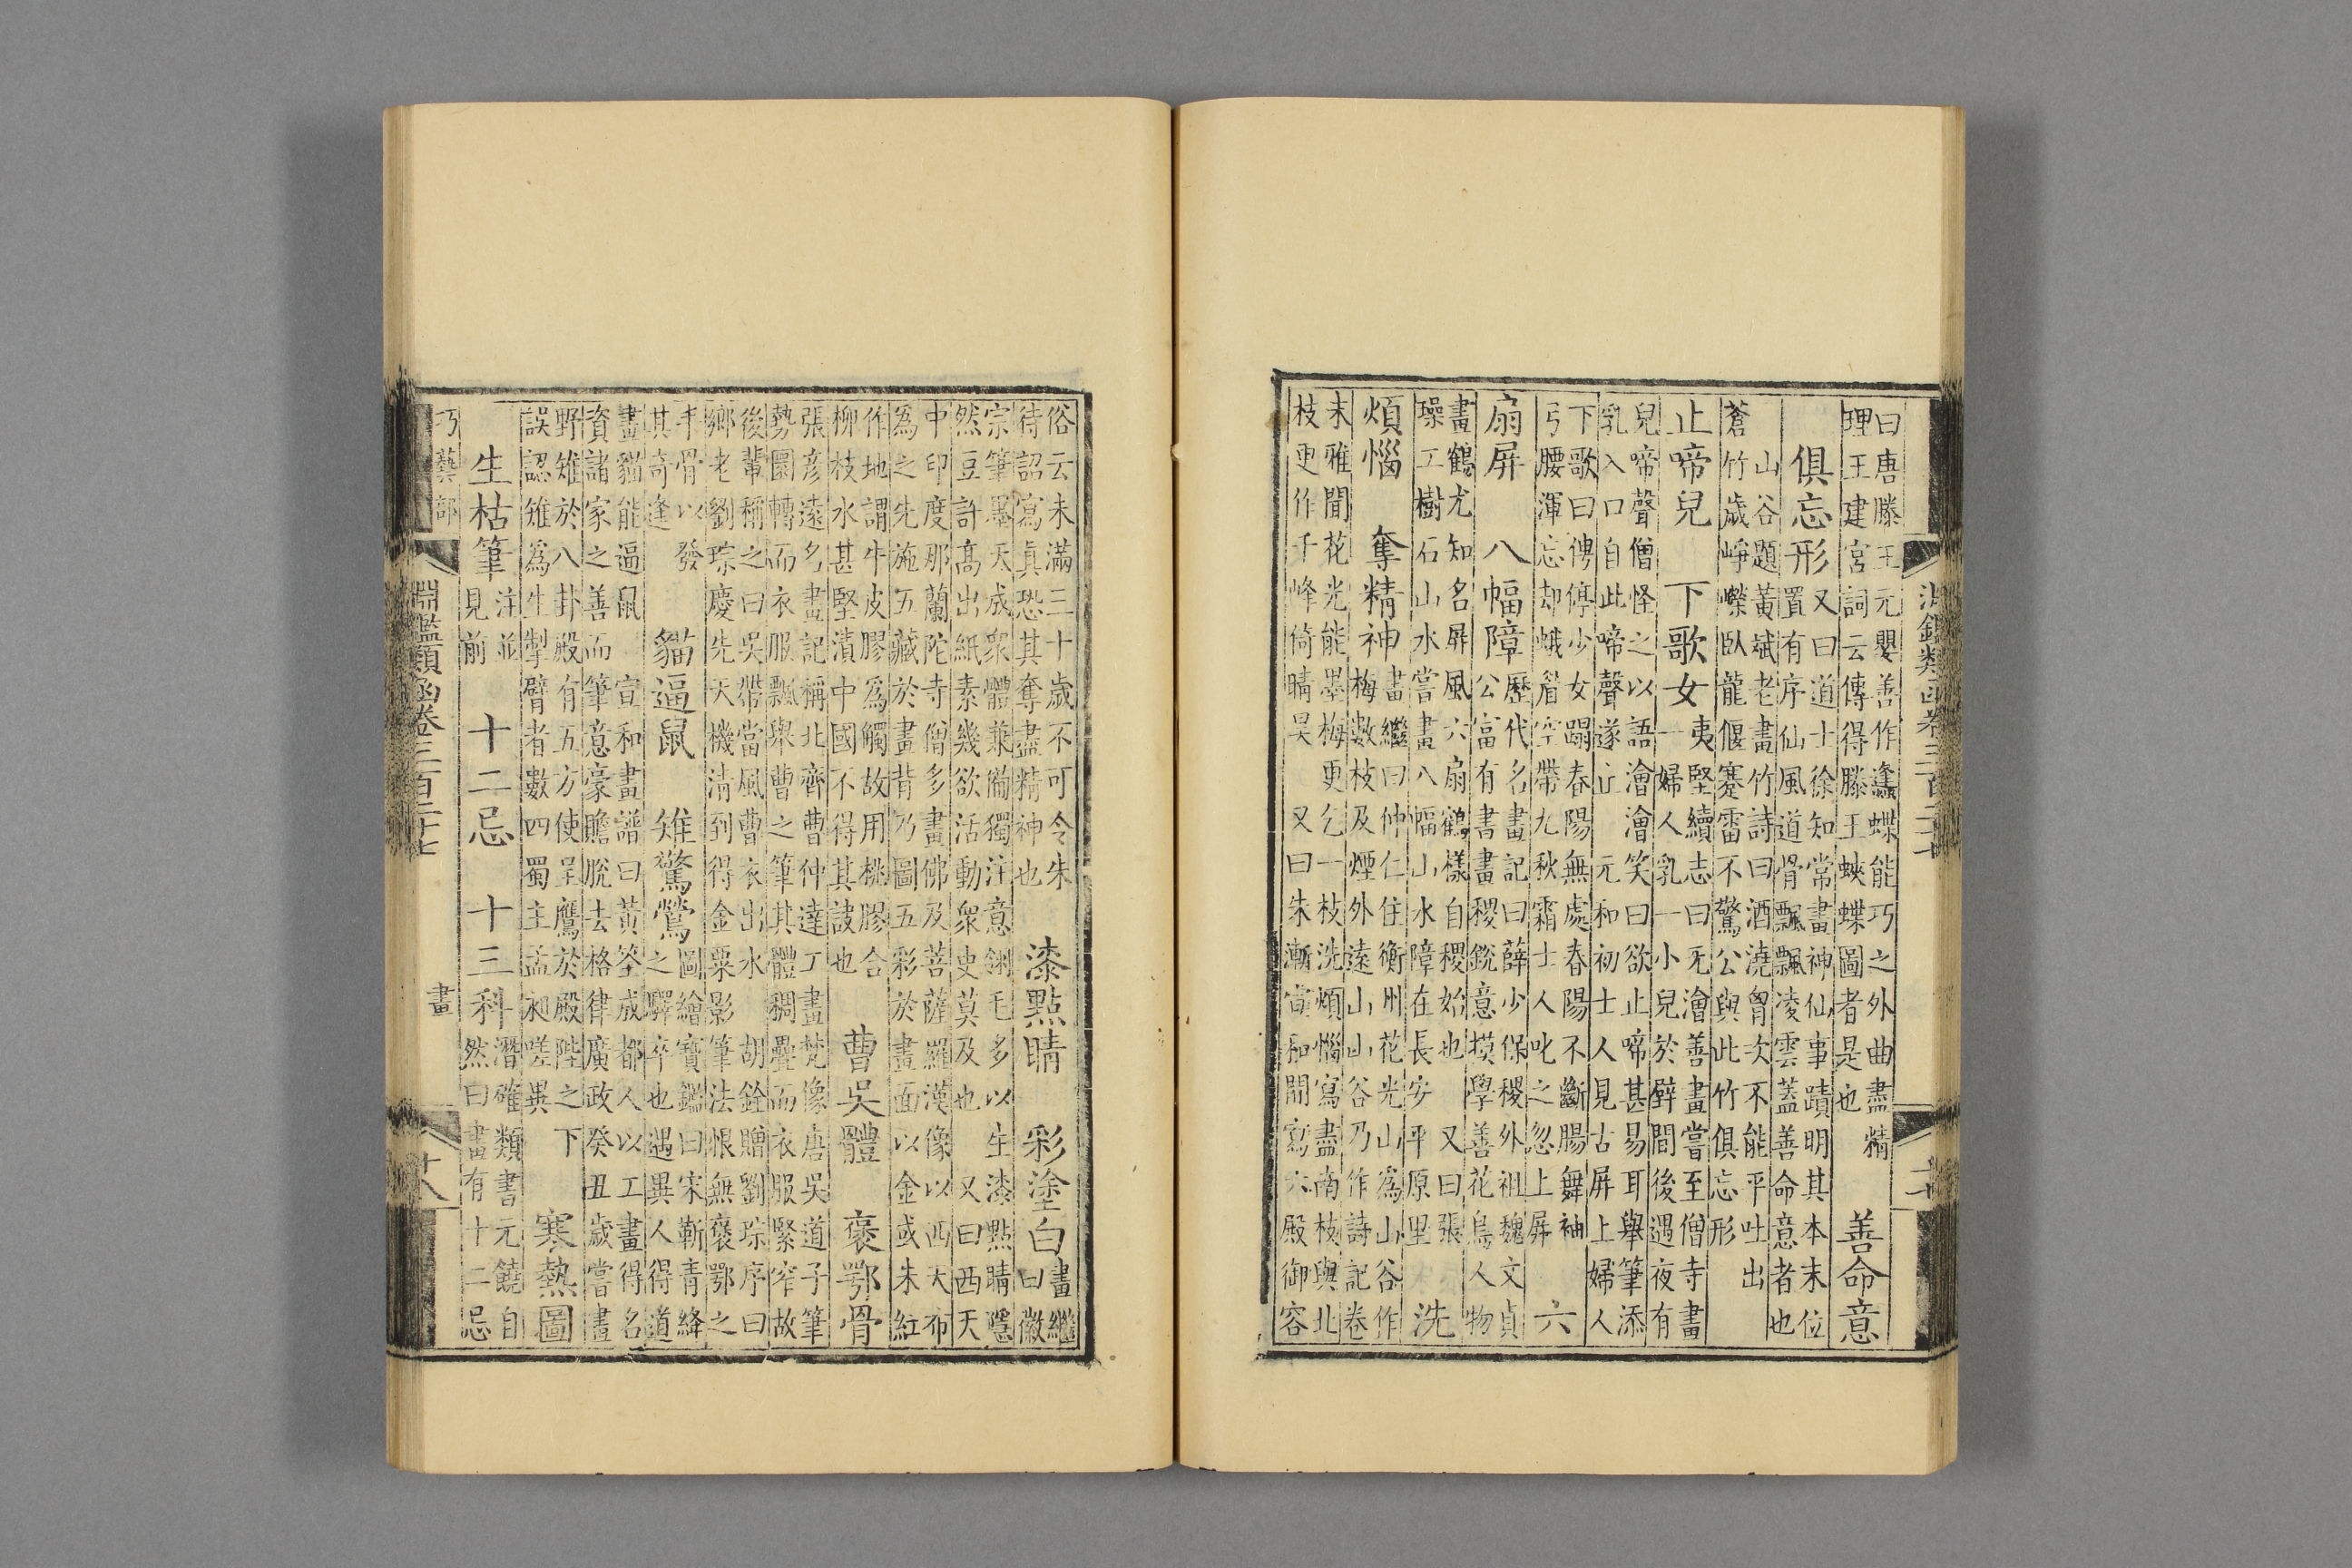 淵鑑類函卷三百二十七
曰唐滕王元嬰善作蠭蝶能巧之外曲盡精
理王建宮詞云傳得滕王蛺蝶圖者是也
善命意
俱忘形
又曰道士徐知常畫神仙事蹟明其本末位
置有序仙風道骨飄飄凌雲蓋善命意者也
山谷題黃斌老畫竹詩曰酒澆胷次不能平吐出
蒼竹歲崢嶸臥龍偃蹇雷不驚公與此竹俱忘形
止啼兒 下歌女
夷堅續志曰旡澮善畫嘗至僧寺畫
一婦人乳一小兒於壁間後遇夜有
兒啼聲僧怪之以語澮澮笑曰欲止啼甚易耳舉筆添
乳入口自此啼聲遂止 元和初士人見古屏上婦人
下歌曰俜停少女踢春陽無處春陽不斷腸舞袖
弓腰渾忘却蛾眉空帶九秋霜士人叱之忽上屏
六
扇屏 八幅障
歷代名畫記曰薛少保稷外祖魏文貞
公富有書畫稷銳意摸學善花鳥人物
畫鶴尤知名屏風六扇鶴樣自稷始也 又曰張
璪工樹石山水嘗畫八幅山水障在長安平原里
洗
煩惱 奪精神
畫繼曰仲仁住衡州花光山爲山谷作
梅數枝及煙外遠山山谷乃作詩記卷
末雅聞花光能墨梅更乞一枝洗煩惱寫盡南枝與北
枝更作千峰倚晴昊 又曰朱漸宣和間寫六殿御容
俗云未滿三十歲不可令朱
待詔寫真恐其奪盡精神也
漆點睛 彩塗白
畫繼
曰徽
宗筆墨天成衆體兼備獨注意翎毛多以生漆點睛隱
然豆許高出紙素幾欲活動衆史莫及也 又曰西天
中印度那蘭陀寺僧多畫佛及菩薩羅漢像以西天布
爲之先施五藏於畫背乃圖五彩於畫面以金或朱紅
作地謂牛皮膠爲觸故用桃膠合
柳枝水甚堅漬中國不得其訣也
曹吳體 褒鄂骨
張彥遠名畫記稱北齊曹仲達工畫梵像唐吳道子筆
勢圓轉而衣服飄舉曹之筆其體稠疊而衣服緊窄故
後輩稱之曰吳帶當風曹衣出水 胡銓贈劉琮序曰
鄉老劉琮慶先天機清到得金粟影筆法恨無褒鄂之
手骨以發
其奇逢
貓逼鼠 雉驚鶯
圖繪寶鑑曰宋靳青絳
之驛卒也遇異人得道
畫貓能逼鼠 宣和畫譜曰黃筌成都人以工畫得名
資諸家之善而筆意豪贍脫去格律廣政癸丑歲嘗畫
野雉於八卦殿有五方使呈鷹於殿陛之下
誤認雉爲生掣臂者數四蜀主孟昶嗟異
寒熱圖
生枯筆
注並
見前
十二忌 十三科
潛確類書元饒自
然曰畫有十二忌
巧藝部
淵鑑類函卷三百二十七
畫
十八